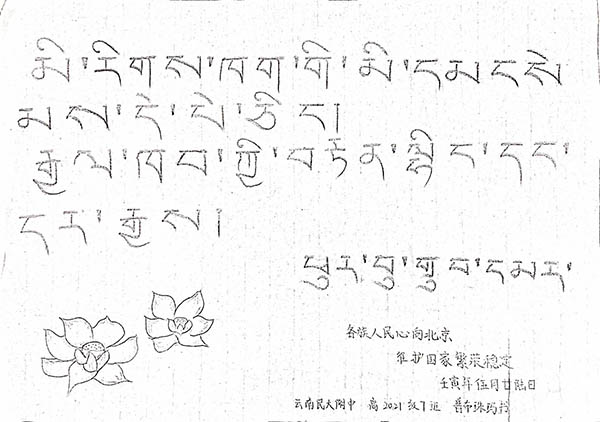 མི་རིགས་ཁག་གི་མི་དམངསེ
མས་དེ་པེ་ཅིང།
རྒྱལ་ཁབ་ཀྱི་བརྟན་ལྷིང་དང་
དར་རྒྱས།
ཕུར་བུ་གྲུབ་དམར་
各族人民心向北京
维护国家繁荣稳定
壬寅年伍月廿陆日
云南民大附中 高2021级7班 普布珠玛